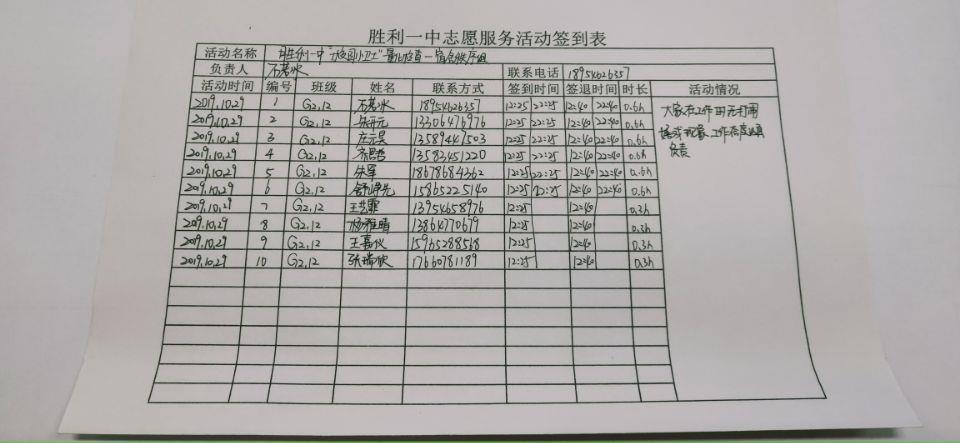 胜利一中志愿服务活动签到表
活动名称 胜利一中"校园小卫士"量化检查-宿舍秩序组
负责人 石若冰 联系电话 18954626357
活动时间 编号 班级 姓名 联系方式 签到时间 签退时间 时长 活动情况
2019.10.29 1 G2.12 石若冰 18954626357 12:25 22:25 12:40 22:40 0.6h 大家在工作时无打闹
2019.10.29 2 G2.12 朱开元 13306476976 12:25 22:25 12:40 22:40 0.6h
2019.10.29 3 G2.12 庄元昊 13589441503 12:25 22:25 12:40 22:40 0.6h 工作态度认真
2019.10.29 4 G2.12 齐思哲 13583451220 12:25 22:25 12:40 22:40 0.6h 负责
2019.10.29 5 G2.12 朱军 18678684362 12:25 22:25 12:40 22:40 0.6h
2019.10.29 6 G2.12 15865225140 12:25 12:25 12:40 22:40 0.6h
2019.10.29 7 G2.12 王艺霏 13954658976 12:25 12:40 0.3h
2019.10.29 8 G2.12 杨雅晴 13864770679 12:25 12:40 0.3h
2019.10.29 9 G2.12 王嘉仪 15965288518 12:25 12:40 0.3h
2019.10.29 10 G2.12 张瑞欣 17660781189 12:25 12:40 0.3h